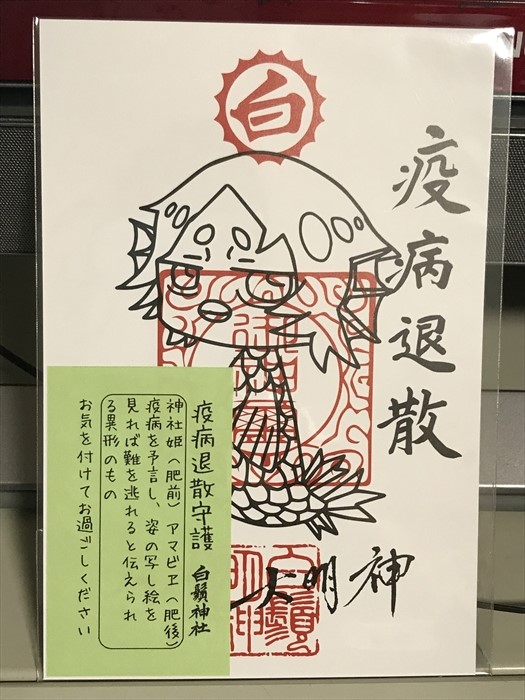 白
疫病退散
大明神
疫病退散守護 白鬚神社
神社姫(肥前) アマビヱ(肥後)
疫病を予言し、姿の写し絵を
見れば難を逃れると伝えられ
る異形のもの
お気を付けてお過ごしください